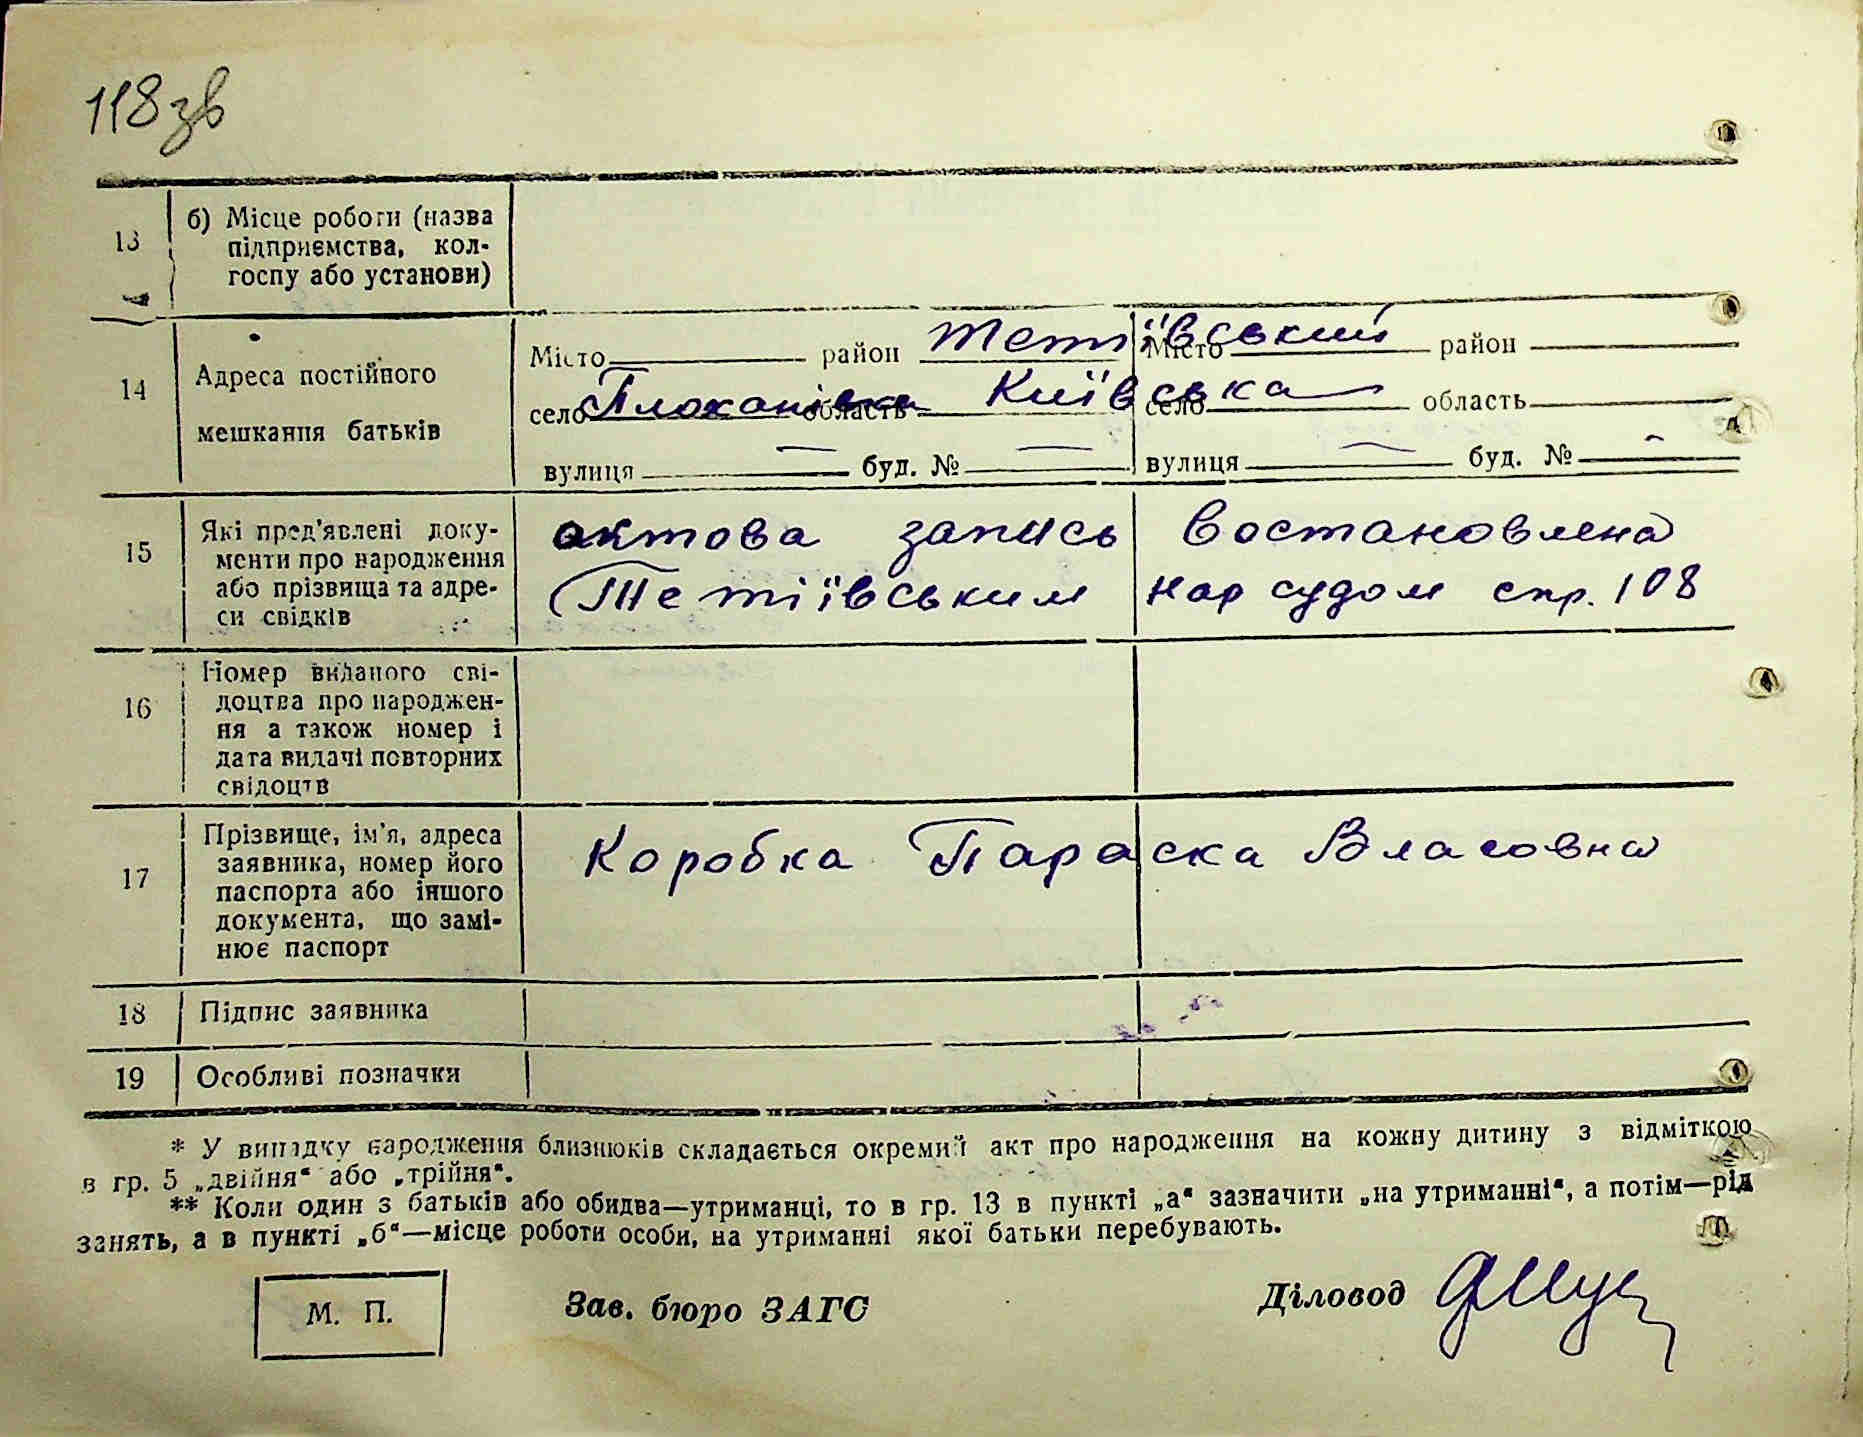 118зв
13 б) Місце роботи (назва
підприємства, кол-
госпу або установи)
14 Адреса постійного
мешкання батьків
Місто район Тетіївський Місто район
село Плоханівка область Київська село область
вулиця — буд. № — вулиця — буд. № —
15 Які пред'явлені доку-
менти про народження
або прізвища та адре-
си свідків
актова запись востановлена
Тетіївським нар судом спр. 108
16 Номер виданого сві-
доцтва про народжен-
ня а також номер і
дата видачі повторних
свідоцтв
17 Прізвище, ім'я, адреса
заявника, номер його
паспорта або іншого
документа, що замі-
нює паспорт
Коробка Параска Власовна
18 Підпис заявника
19 Особливі позначки
* У випадку народження близнюків складається окремий акт про народження на кожну дитину з відміткою
в гр. 5 „двійня“ або „трійня“.
** Коли один з батьків або обидва—утриманці, то в гр. 13 в пункті „а“ зазначити „на утриманні“, а потім—рід
занять, а в пункті „б“—місце роботи особи, на утриманні якої батьки перебувають.
М. П. Зав. бюро ЗАГС Діловод